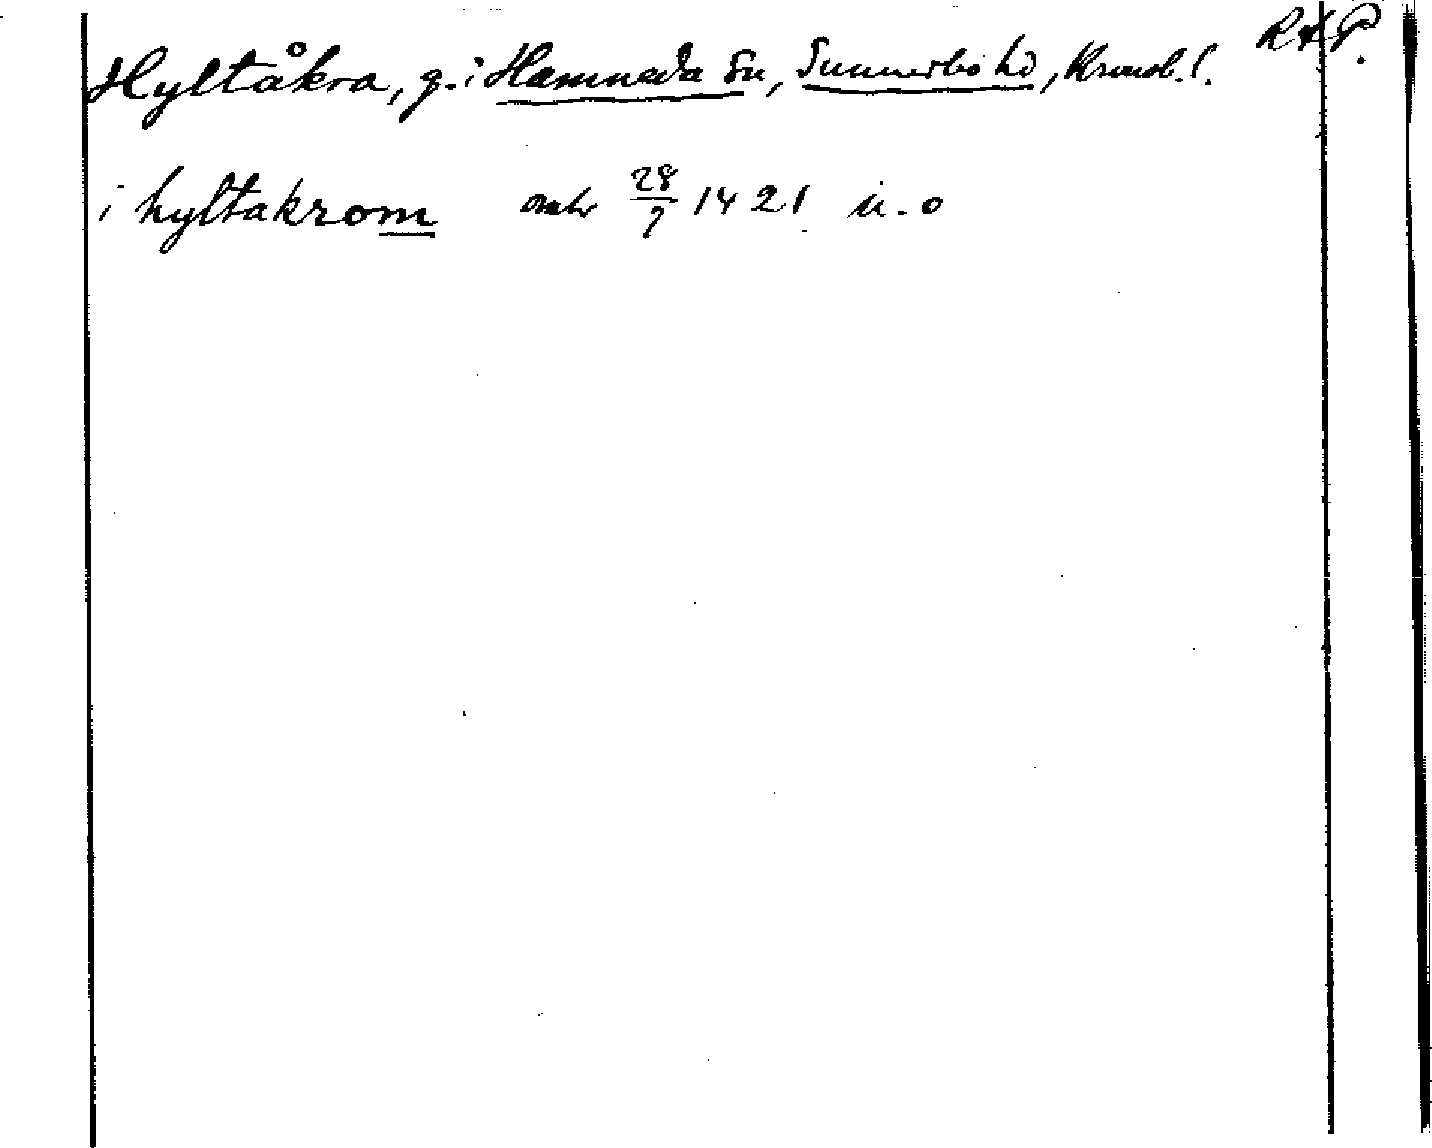 Hyltåkra, g. i Hamneda sn, Sunnerbo hd, Kronob. l. RAP.
i hyltakrom 28/9 1421 u. o